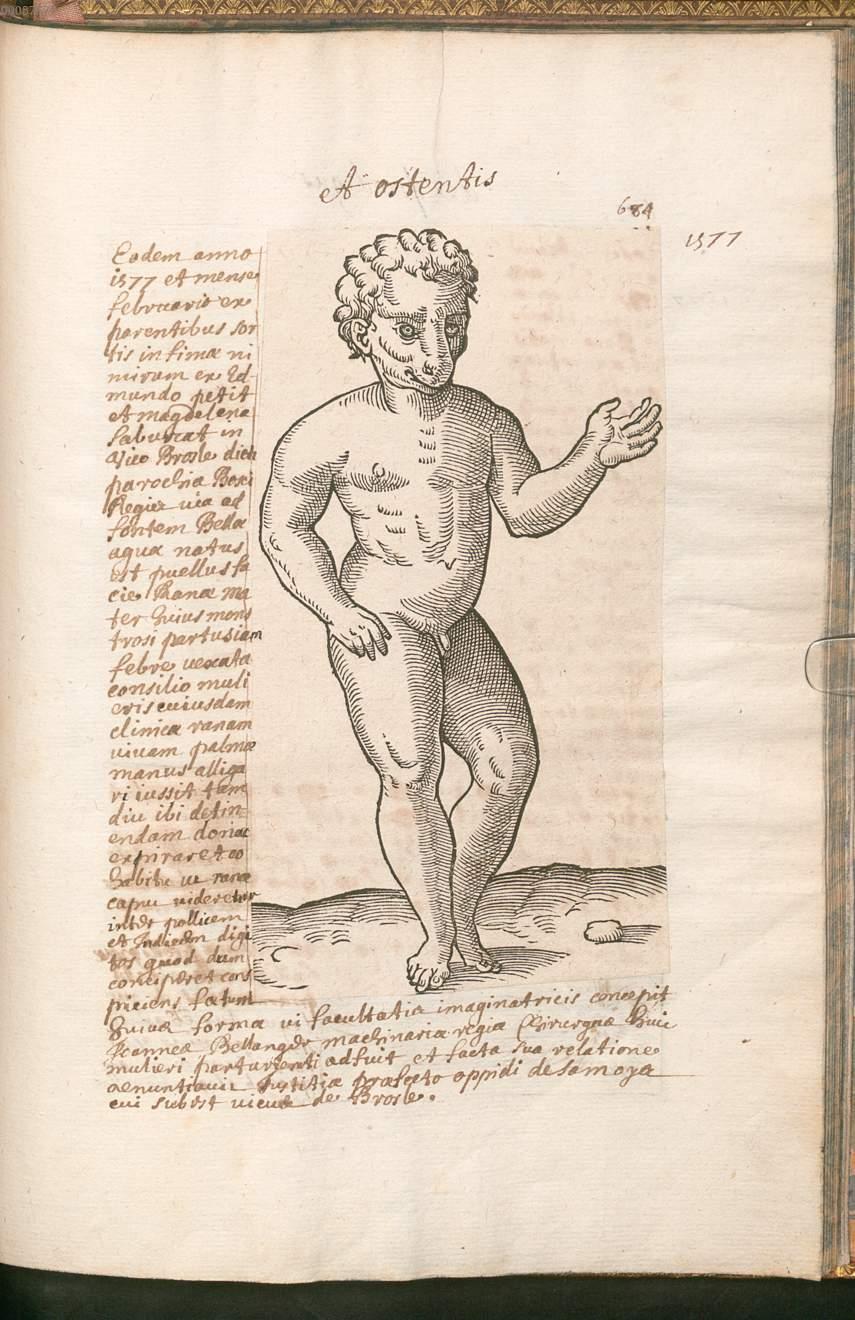 et ostentis
684
1577
Eadem anno
1577 et mense
februario ex
parentibus sor
tis infimæ ni
mirum ex Ed
mundo petit
et magdelena
Sabucat in
vico Brosle dicti
parochia Boxi
Regiæ via ad
fontem Bellæ
aquæ natus
est puellus fa
cie Ranæ ma
ter huius mons
trosi partus iam
febre uexata
consilio muli
eris cuiusdam
clinicæ ranam
uiuam palmæ
manus alliga
ri iussit tam
diu ibi detin
endam donec
expiraret eo
habitu ut ranæ
caput uideretur
inter pollicem
et Indicem digi
tos quod dum
conciperet cons
piciens fætum
huius formæ ui facultatis imaginatricis concepit
Joannes Bellanger machinariæ regiæ Chirurgus huic
mulieri parturienti adfuit et facta sua relatione
denuntiauit Justitiæ præfecto oppidi de Samoya
cui subest uicus de Brosle.